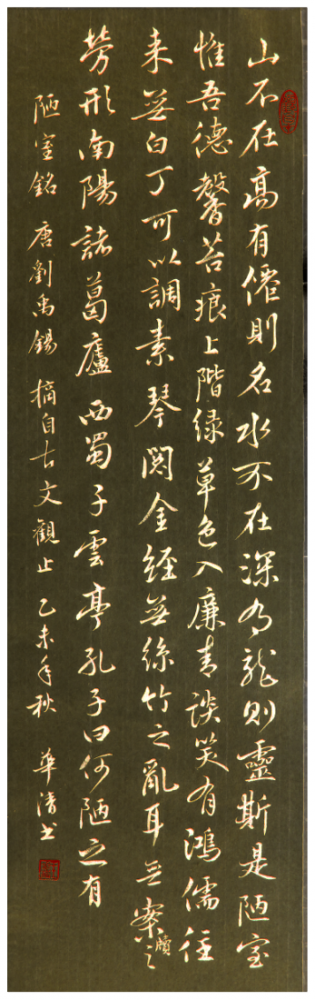 山不在高有僊則名水不在深有龍則靈斯是陋室
惟吾德馨苔痕上階緑草色入廉青談笑有鴻儒往
来無白丁可以調素琴閲金經無絲竹之亂耳無案牘之
勞形南陽諸葛廬西蜀子雲亭孔子曰何陋之有
陋室銘 唐劉禹錫 摘自古文觀止 乙未年秋 華清书